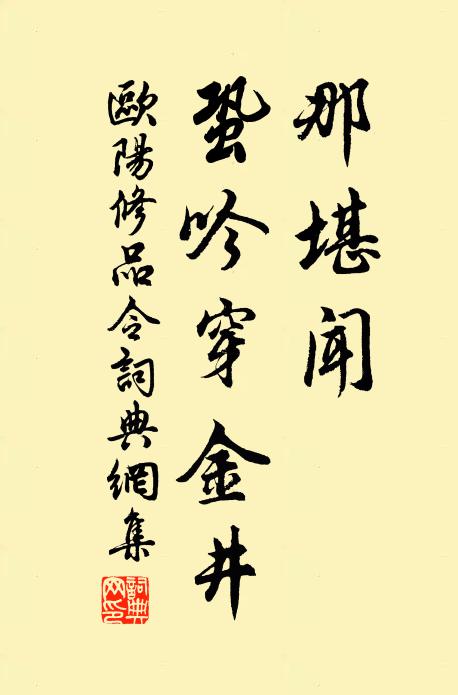 那堪聞
蛩吟穿金井
歐陽修品令詞典網集
詞典网印